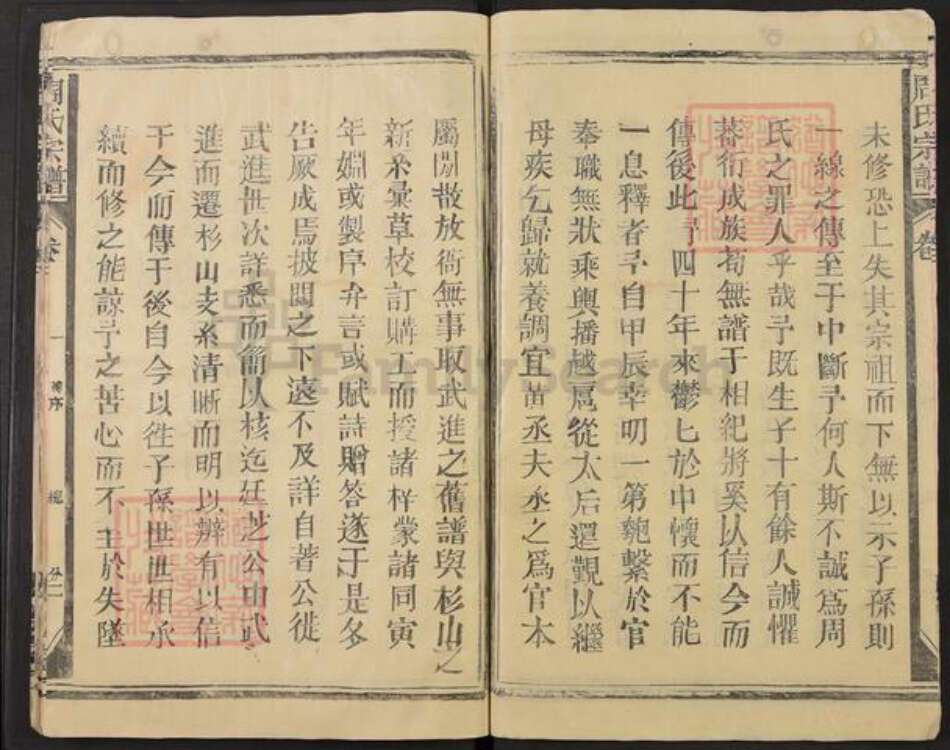 未修恐上失其宗祖而下無以示子孫則
一線之傳至于中斷予何人斯不誠為周
氏之罪人乎哉予既生子十有餘人誠懼
蕃衍成族苟無譜于相紀將奚以信今而
傳後此予四十年來鬱匕於中懷而不能
一息釋者予自甲辰幸叨一第匏繫於官
奉職無狀乘輿播越扈從太后還覲以繼
母疾乞歸就養調宜苗丞夫丞之為官本
屬閒散放衙無事取武進之舊譜與杉山之
新系彙草校訂購工而授諸梓蒙諸同寅
年嫺或製序弁言或賦詩贈答遂于是冬
告厥成焉披閱之下遠不及詳自著公徙
武進世次詳悉而簡以核迄廷芝公由武
進而遷杉山支系清晰而明以辨有以信
于今而傳于後自今以徃子孫世世相承
續而修之能諒予之苦心而不至於失墜
周氏宗譜
卷
一
序
Family Search